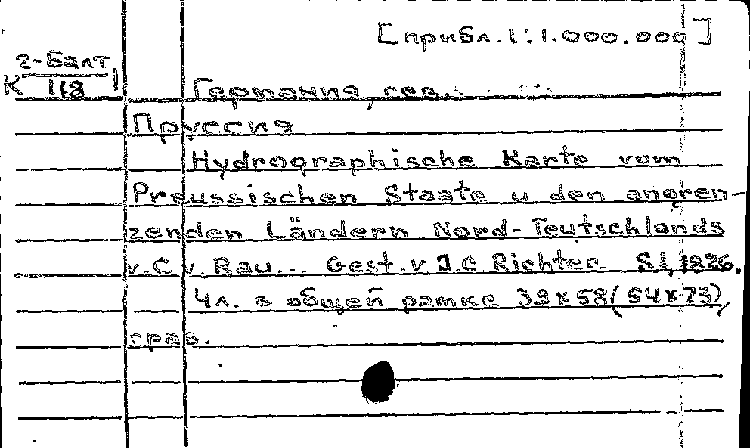 [прибл. 1:1.000.000]
2-Балт
К 118
Германия, сев.
Пруссия
Hydrographische Karte vom
Preussischen Staate u den angren-
zenden Ländern Nord-Teutschlands
v. C v. Rau... Gest. v J.C Richter S.l, 1826.
4л. в общей рамке 39x58(54x73),
грав.